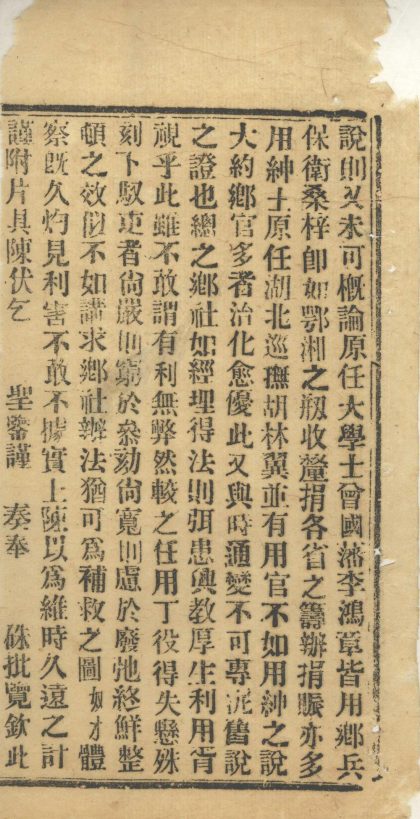 說則又未可概論原任大學士曾國藩李鴻章皆用鄉兵
保衛桑梓卽如鄂湘之剏收釐捐各省之籌辦捐賑亦多
用紳士原任湖北巡撫胡林翼並有用官不如用紳之說
大約鄉官多者治化愈優此又與時通變不可專泥舊說
之證也總之鄉社如經理得法則弭患興教厚生利用胥
視乎此雖不敢謂有利無弊然較之任用丁役得失懸殊
刻下馭吏者尙嚴則窮於叅劾尙寬則慮於廢弛終鮮整
頓之效似不如講求鄉社辦法猶可爲補救之圖奴才體
察旣久灼見利害不敢不據實上陳以爲維時久遠之計
謹附片具陳伏乞 聖鑒謹 奏奉 硃批覽欽此